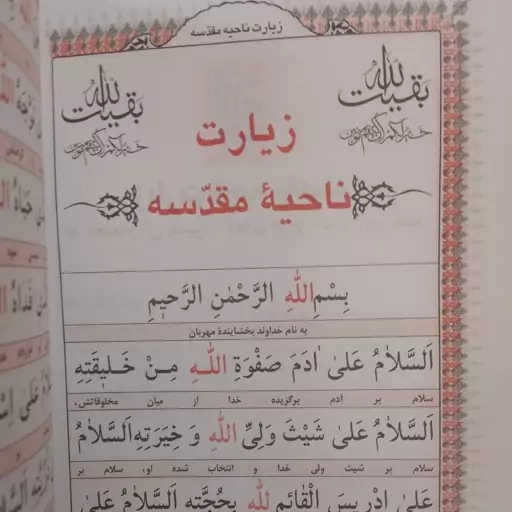 زیارت ناحیه مقدسه
بقیت الله
خیر لکم ان کنتم مومنین
بقیت الله
خیر لکم ان کنتم مومنین
زیارت
ناحیهٔ مقدّسه
بِسْمِ اللهِ الرَّحْمٰنِ الرَّحیٖمِ
به نام خداوند بخشایندهٔ مهربان
اَلسَّلاٰمُ عَلیٰ اٰدَمَ صَفْوَةِ اللّٰهِ مِنْ خَلیٖقَتِهِ
سلام بر آدم برگزیده خدا از میان مخلوقاتش،
اَلسَّلاٰمُ عَلیٰ شَیْثَ وَلِیِّ اللّٰهِ وَ خِیَرَتِهِ اَلسَّلاٰمُ
سلام بر شیث ولی خدا و انتخاب شده او، سلام بر
عَلیٰ اِدْریٖسَ الْقٰائِمِ لِلّٰهِ بِحُجَّتِهِ اَلسَّلاٰمُ عَلیٰ